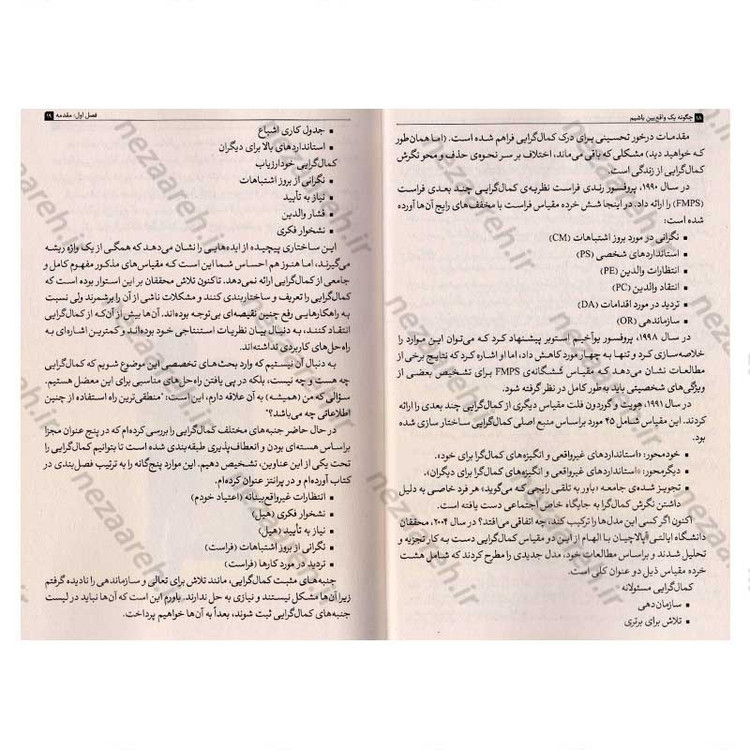 ۱۸ چگونه یک واقع‌بین باشیم
مقدمات درخور تحسینی برای درک کمال‌گرایی فراهم شده است. (اما همان طور
که خواهید دید) مشکلی که باقی می‌ماند، اختلاف بر سر نحوه‌ی حذف و محو نگرش
کمال‌گرایی از زندگی است.
در سال ۱۹۹۰، پروفسور رندی فراست نظریه‌ی کمال‌گرایی چند بعدی فراست
(FMPS) را ارائه داد. در اینجا شش خرده مقیاس فراست با مخفف‌های رایج آن‌ها آورده
شده است:
▪ نگرانی در مورد بروز اشتباهات (CM)
▪ استانداردهای شخصی (PS)
▪ انتظارات والدین (PE)
▪ انتقاد والدین (PC)
▪ تردید در مورد اقدامات (DA)
▪ سازماندهی (OR)
در سال ۱۹۹۸، پروفسور یوآخیم استوبر پیشنهاد کرد که می‌توان این موارد را
خلاصه‌سازی کرد و تنها به چهار مورد کاهش داد، اما او اشاره کرد که نتایج برخی از
مطالعات نشان می‌دهد که مقیاس شش‌گانه‌ی FMPS برای تشخیص بعضی از
ویژگی‌های شخصیتی باید به‌طور کامل در نظر گرفته شود.
در سال ۱۹۹۱، هویت و گوردون فلت مقیاس دیگری از کمال‌گرایی چند بعدی را ارائه
کردند. این مقیاس شامل ۴۵ مورد براساس منبع اصلی کمال‌گرایی ساختار سازی شده
بود.
▪ خودمحور: «استانداردهای غیرواقعی و انگیزه‌های کمال‌گرا برای خود».
▪ دیگرمحور: «استانداردهای غیرواقعی و انگیزه‌های کمال‌گرا برای دیگران».
▪ تجویز شده‌ی جامعه: «باور به تلقی رایجی که می‌گوید» هر فرد خاصی به دلیل
داشتن نگرش کمال‌گرا به جایگاه خاص اجتماعی دست یافته است.
اکنون اگر کسی این مدل‌ها را ترکیب کند، چه اتفاقی می‌افتد؟ در سال ۲۰۰۴، محققان
دانشگاه ایالتی آپالاچیان با الهام از این دو مقیاس کمال‌گرایی دست به کار تجزیه و
تحلیل شدند و براساس مطالعات خود، مدل جدیدی را مطرح کردند که شامل هشت
خرده مقیاس ذیل دو عنوان کلی است.
کمال‌گرایی مسئولانه
▪ سازمان‌دهی
▪ تلاش برای برتری
فصل اول: مقدمه ۱۹
▪ جدول کاری اشباع
▪ استانداردهای بالا برای دیگران
کمال‌گرایی خودارزیاب
▪ نگرانی از بروز اشتباهات
▪ نیاز به تأیید
▪ فشار والدین
▪ نشخوار فکری
این ساختاری پیچیده از ایده‌هایی را نشان می‌دهد که همگی از یک واژه ریشه
می‌گیرند، اما هنوز هم احساس شما این است که مقیاس‌های مذکور مفهوم کامل و
جامعی از کمال‌گرایی ارائه نمی‌دهد. تاکنون تلاش محققان بر این استوار بوده است که
کمال‌گرایی را تعریف و ساختاربندی کنند و مشکلات ناشی از آن را برشمرند ولی نسبت
به راهکارهایی رفع چنین نقیصه‌ای بی‌توجه بوده‌اند. آن‌ها بیش از آن‌که از کمال‌گرایی
انتقاد کنند، به دنبال بیان نظریات استنتاجی خود بوده‌اند و کمترین اشاره‌ای به
راه‌حل‌های کاربردی نداشته‌اند.
به دنبال آن نیستیم که وارد بحث‌های تخصصی این موضوع شویم که کمال‌گرایی
چه هست و چه نیست، بلکه در پی یافتن راه‌حل‌های مناسبی برای این معضل هستیم.
سؤالی که من (همیشه) به آن علاقه دارم، این است: "منطقی‌ترین راه استفاده از چنین
اطلاعاتی چه می‌باشد؟"
در حال حاضر جنبه‌های مختلف کمال‌گرایی را بررسی کرده‌ام که در پنج عنوان مجزا
براساس هسته‌ای بودن و انعطاف‌پذیری طبقه‌بندی شده است تا بتوانیم کمال‌گرایی را
تحت یکی از این عناوین، تشخیص دهیم. این موارد پنج‌گانه را به ترتیب فصل‌بندی در
کتاب آورده‌ام و در پرانتز عنوان کرده‌ام.
▪ انتظارات غیرواقع‌بینانه (اعتیاد خودم)
▪ نشخوار فکری (هیل)
▪ نیاز به تأیید (هیل)
▪ نگرانی از بروز اشتباهات (فراست)
▪ تردید در مورد کارها (فراست)
جنبه‌های مثبت کمال‌گرایی، مانند تلاش برای تعالی و سازماندهی را نادیده گرفتم
زیرا آن‌ها مشکل نیستند و نیازی به حل ندارند. باورم این است که آن‌ها نباید در لیست
جنبه‌های کمال‌گرایی ثبت شوند، بعداً به آن‌ها خواهیم پرداخت.
nezaareh.ir